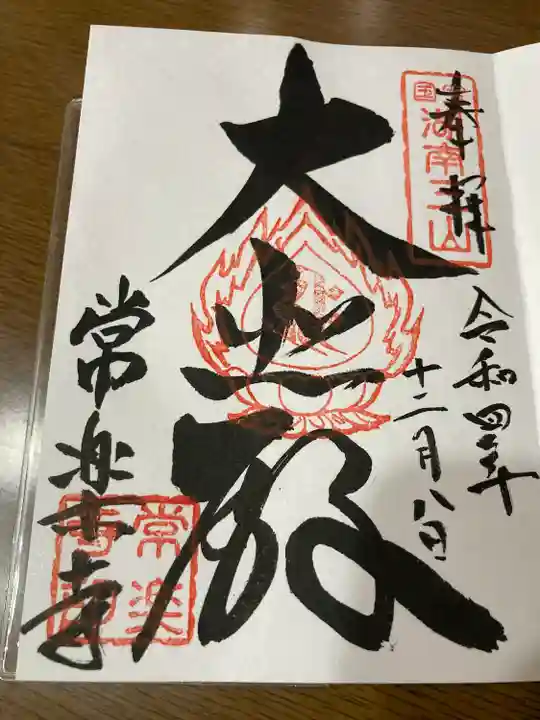 奉拝
国宝湖南三山
令和四年
十二月八日
大悲殿
常楽寺
常楽寺